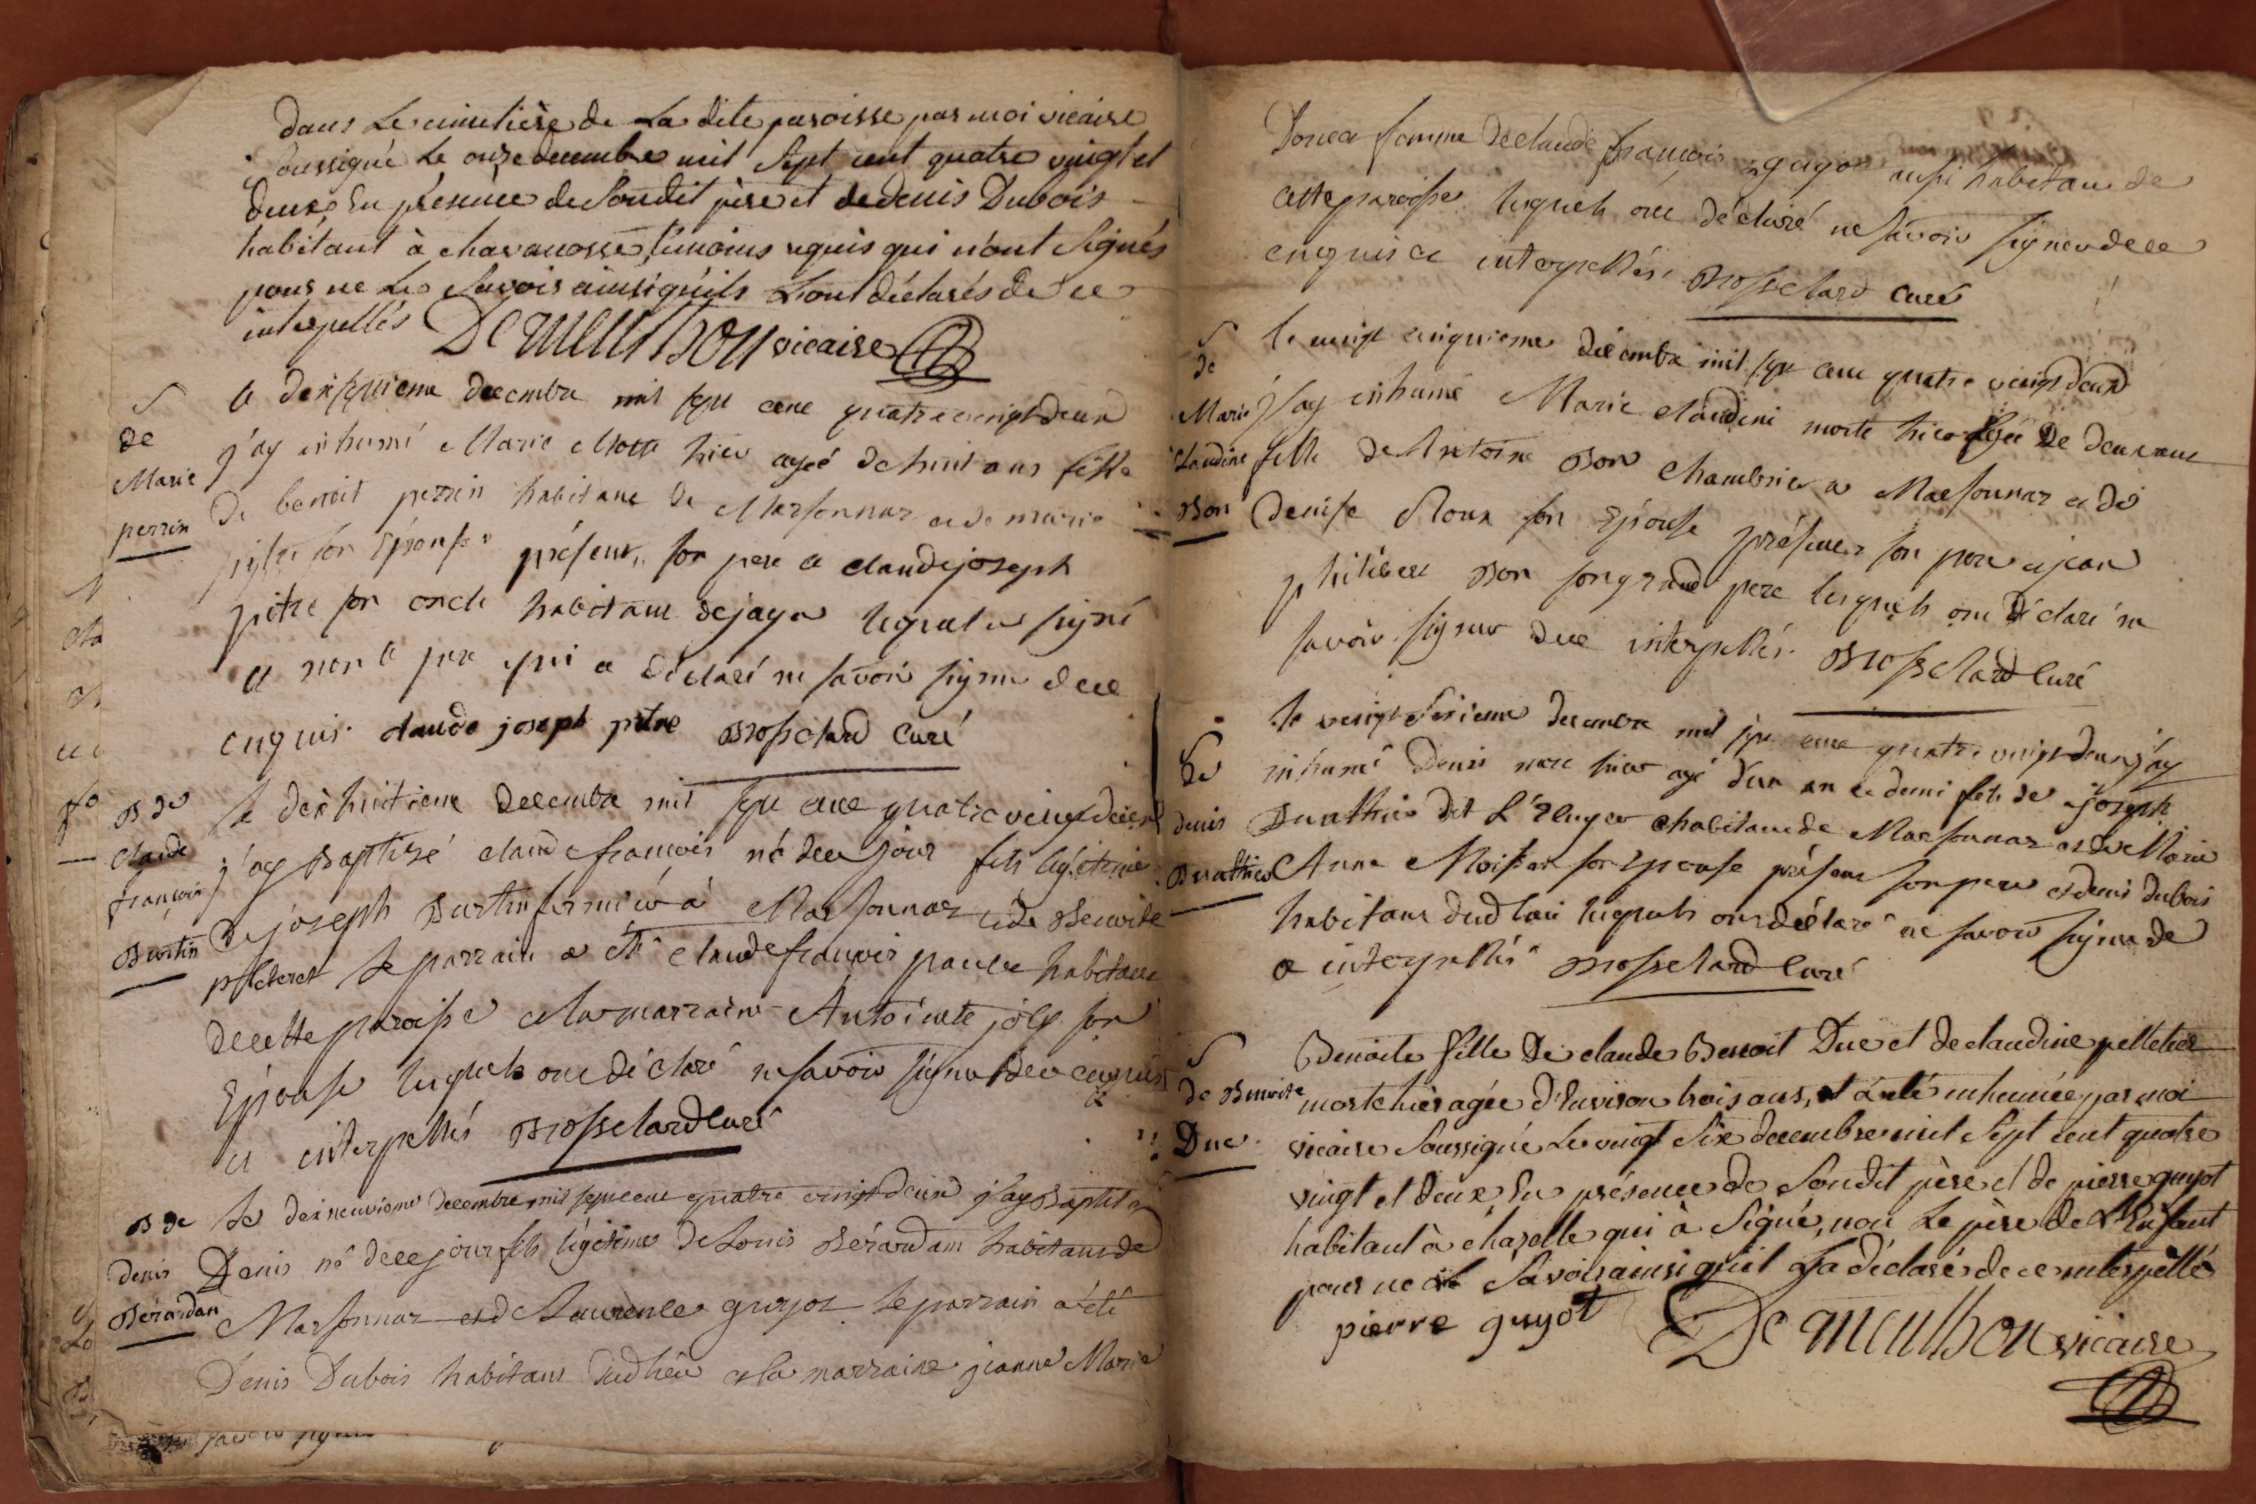 dans Le cimetière de La dite paroisse par moi vicaire
soussigné Le onze decembre mil Sept cent quatre vingt et
deux En présence de Son dit père et de denis Dubois
habitant à chavanosse, témoins requis qui n'ont Signés
pour ne Le Savoir ainsi qu'ils L'ont déclarés de ce
interpellés Demeulhon vicaire
S
de
Marie
perrin
le dixseptieme decembre mil sept cent quatre vingt deux
j'ay inhumé Marie Morte hier agée de huit ans fille
de benoit perrin habitant de Marsonnas et de marie
pitre son Epouse présents son pere et claude joseph
pitre son oncle habitant de jaya lequel a signé
et non le pere qui a déclaré ne savoir signer de ce
enquis. claude joseph pitre Brosselard Curé
B de
claude
françois
Burtin
le dixhuitieme decembre mil sept cent quatre vingt deux
j'ay Baptisé claude françois né de ce jour fils légitime
de joseph Burtin fermier à Marsonnas et de Benoite
pelleteret le parrain a été claude françois habitant
de cette paroisse et la marraine Antoinette joly son
Epouse lesquels ont déclaré ne savoir signer de ce enquis
et interpellés Brosselard Curé
B de
denis
Bérardan
Le dixneuvieme decembre mil sept cent quatre vingt deux j'ay Baptisé
Denis né de ce jour fils légitime de Louis Bérardan habitant de
Marsonnas et de Laurence guyot le parrain a été
Denis Dubois habitant dud lieu et la marraine jeanne Marie
femme de claude françois aussi habitant de
cette paroisse lesquels ont déclaré ne savoir signer de ce
enquis et interpellés. Brosselard curé
S
de
Marie
Claudine
Bon
le vingt cinquieme décembre mil sept cent quatre vingt deux
j'ay inhumé Marie claudine morte hier agée de deux ans
fille de Antoine Bon chambrier a Marsonnas et de
denise Roux son Epouse présents son pere et jean
philibert Bon son grand pere lesquels ont déclaré ne
savoir signer de ce interpellés. Brosselard Curé
S
de
denis
Buathier
le vingt Sixieme decembre mil sept cent quatre vingt deux j'ay
inhumé Denis mort hier agé d'un an et demi fils de joseph
Buathier dit habitant de Marsonnas et de Marie
Anne son Epouse présents son pere et denis dubois
habitant dud lieu lesquels ont déclaré ne savoir signer de
ce interpellés Brosselard Curé
S
de Benoite
Duc
Benoite fille De claude Benoit Duc et de claudine pelletier
morte hier agée d'Environ trois ans, a été inhumée par moi
vicaire Soussigné Le vingt Six decembre mil Sept cent quatre
vingt et deux En présence de Son dit père et de pierre guyot
habitant à chazelle qui à Signé, non Le père de L'Enfant
pour ne Savoir ainsi qu'il La déclaré de ce interpellé
pierre guyot Demeulhon vicaire